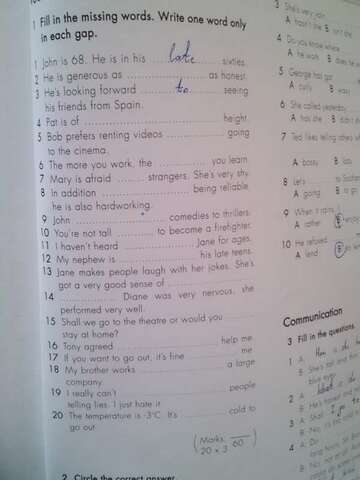 1 Fill in the missing words. Write one word only
in each gap.
1 John is 68. He is in his late sixties.
2 He is generous as as honest.
3 He's looking forward to seeing
his friends from Spain.
4 Pat is of height.
5 Bob prefers renting videos going
to the cinema.
6 The more you work, the you learn.
7 Mary is afraid strangers. She's very shy.
8 In addition being reliable,
he is also hardworking.
9 John comedies to thrillers.
10 You're not tall to become a firefighter.
11 I haven't heard Jane for ages.
12 My nephew is his late teens.
13 Jane makes people laugh with her jokes. She's
got a very good sense of
14 Diane was very nervous, she
performed very well.
15 Shall we go to the theatre or would you
stay at home?
16 Tony agreed help me.
17 If you want to go out, it's fine me.
18 My brother works a large
company.
19 I really can't people
telling lies. I just hate it.
20 The temperature is -3°C. It's cold to
go out.
(Marks:
20 x 3 60)
2 Circle the correct answer.
3 She's very
A hasn't she B isn't
4 Do you know where
A he work B does he
5 George has got
A curly B wavy
6 She called yesterday
A has she B didn't
7 Ted likes telling others
A bossy B lazy
8 Let's to
A going B to go
9 When it rains, I
A rather B
10 He refused
A lend B
Communication
3 Fill in the questions
1 A: How is he
B: She's tall and
blue eyes.
2 A: What is she
B: He's honest and
3 A: Shall
B: No, it's
4 A: Do
B: No, not at all.